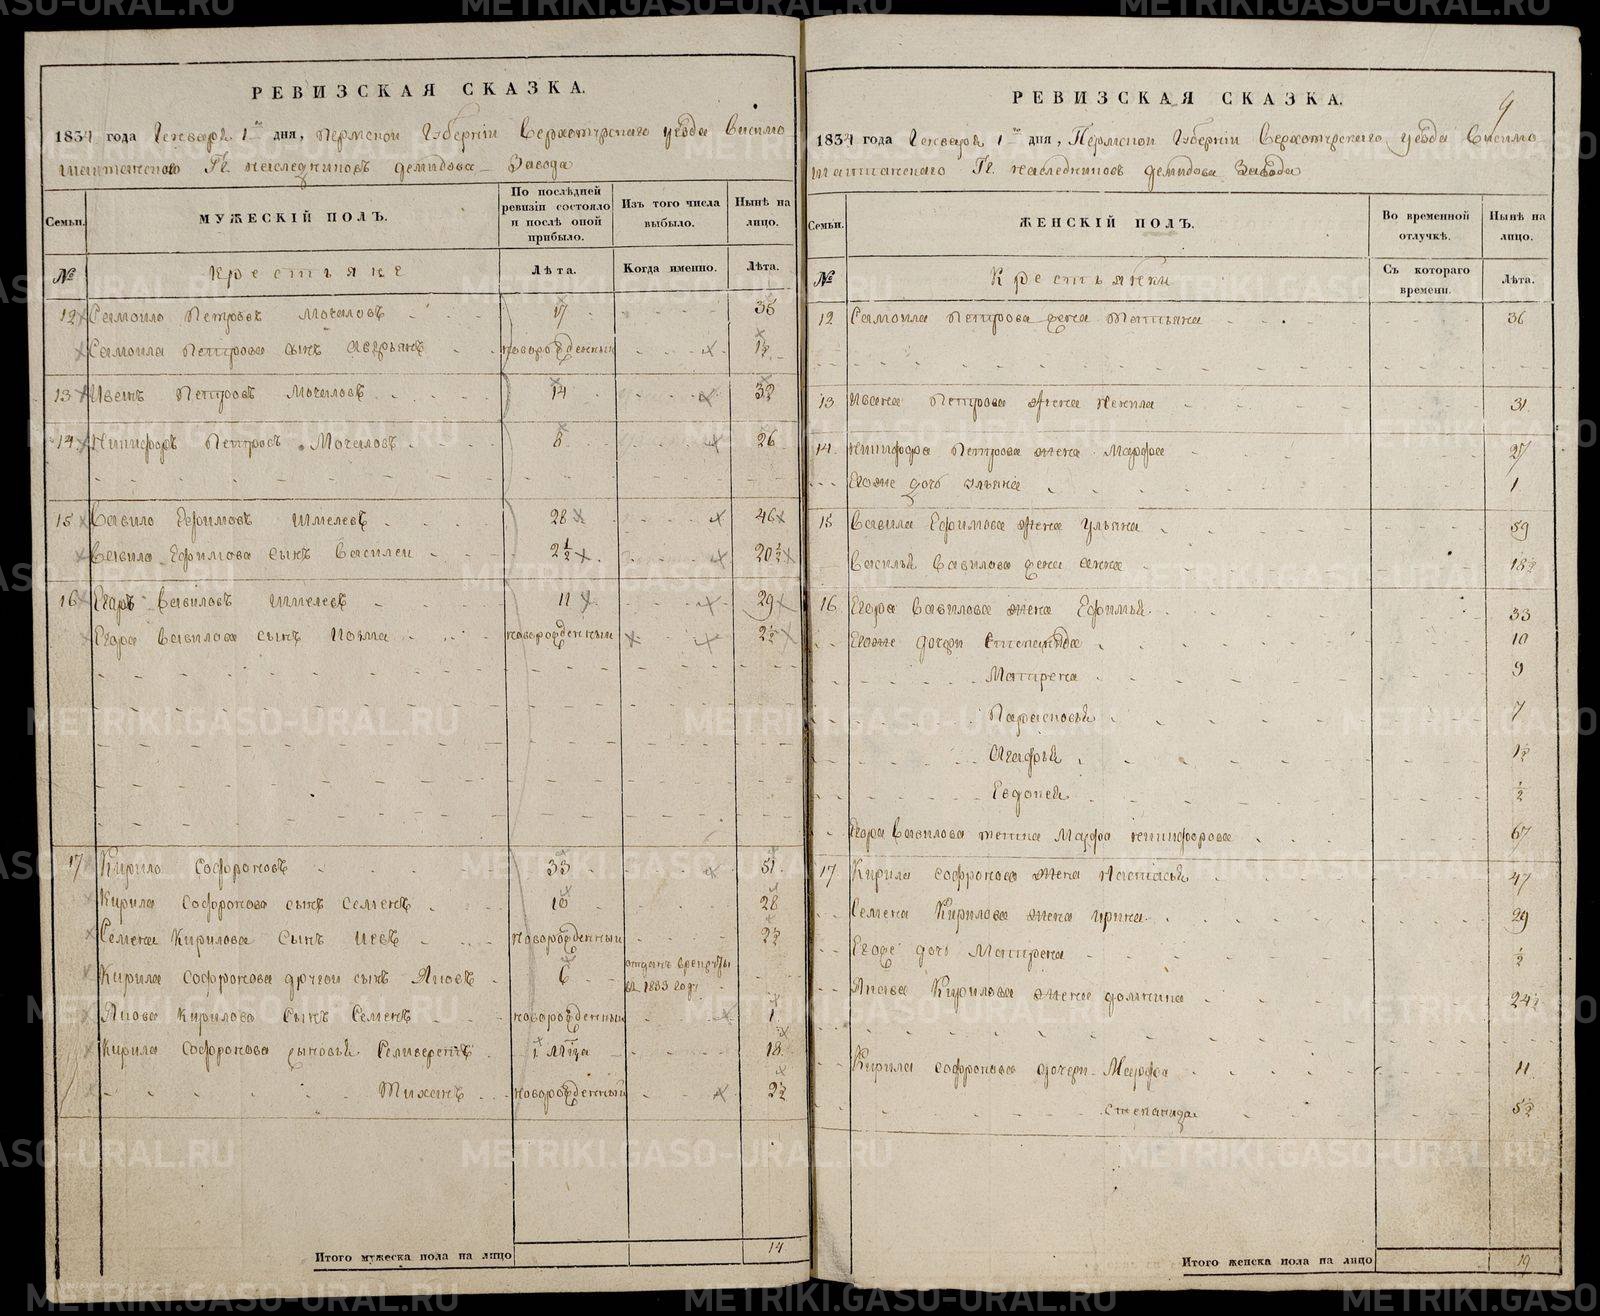 РЕВИЗСКАЯ СКАЗКА.
1834 года Генваря 1го дня, Пермской Губернии Верхотурскаго уезда Висимо
шайтанскаго Гг. наследниковъ демидова Завода
Семьи.
МУЖЕСКІЙ ПОЛЪ.
По послѣдней ревизіи состояло и послѣ оной прибыло.
Изъ того числа выбыло.
Нынѣ на лицо.
№ Крестьяне Лѣта. Когда именно. Лѣта.
12 Самоило Петровъ Мочаловъ 17 35
Самоила Петрова сынъ Аверьянъ новорожденный 1½
13 Иванъ Петровъ Мочаловъ 14 32
14 Никифоръ Петровъ Мочаловъ 8 26
15 Вавило Ефимовъ Шмелевъ 28 46
Вавила Ефимова сынъ Василеи 2½ 20½
16 Егоръ Вавиловъ Шмелевъ 11 29
Егора Вавилова сынъ Козма новорожденный 2½
17 Кирило Софроновъ 33 51
Кирила Софронова сынъ Семенъ 10 28
Семена Кирилова Сынъ Иевъ новорожденный 2½
Кирила Софронова другой сынъ Яковъ 6 отданъ в рекруты
въ 1833 году
Якова Кирилова Сынъ Семенъ новорожденный 1
Кирила Софронова сыновья Селиверстъ 18
Тиханъ новорожденный 2½
Итого мужеска пола на лицо 14
РЕВИЗСКАЯ СКАЗКА.
1834 года Генваря 1го дня, Пермской Губернии Верхотурскаго уезда Висимо
шайтанскаго Гг. наследниковъ демидова Завода
Семьи.
ЖЕНСКІЙ ПОЛЪ.
Во временной отлучкѣ.
Нынѣ на лицо.
№ Крестьянки Съ котораго времени. Лѣта.
12 Самоила Петрова жена Татьяна 36
13 Ивана Петрова жена Некила 31
14 Никифора Петрова жена Марфа 27
Егоже дочь Ульяна 1
15 Вавила Ефимова жена Ульяна 59
Василья Вавилова жена Анна 18½
16 Егора Вавилова жена Ефимья 33
Егоже дочери Степанида 10
Матрена 9
Парасковья 7
Агафья 1½
Евдокея ½
Егора Вавилова тетка Марфа Никифорова 67
17 Кирила Софронова жена Настасья 47
Семена Кирилова жена Ирина 29
Егоже дочь Матрена ½
Якова Кирилова жена домнина 24½
Кирила Софронова дочери Марфа 11
Степанида 5½
Итого женска пола на лицо 19
METRIKI.GASO-URAL.RU